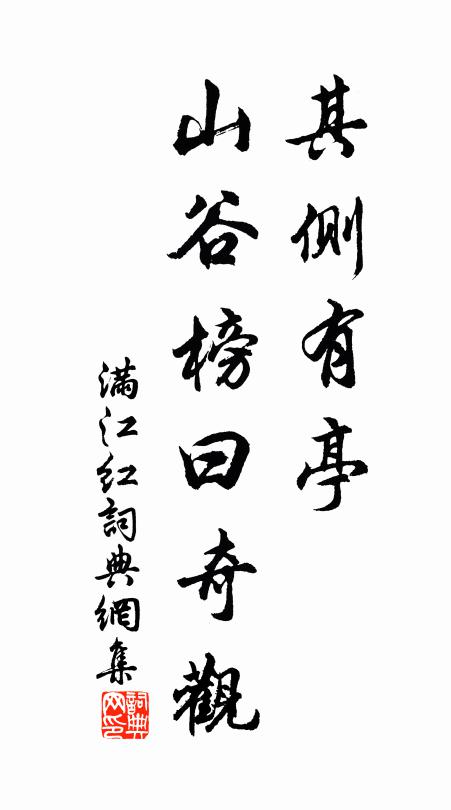 其側有亭
山谷榜曰奇觀
滿江紅詞典網集
詞典网印